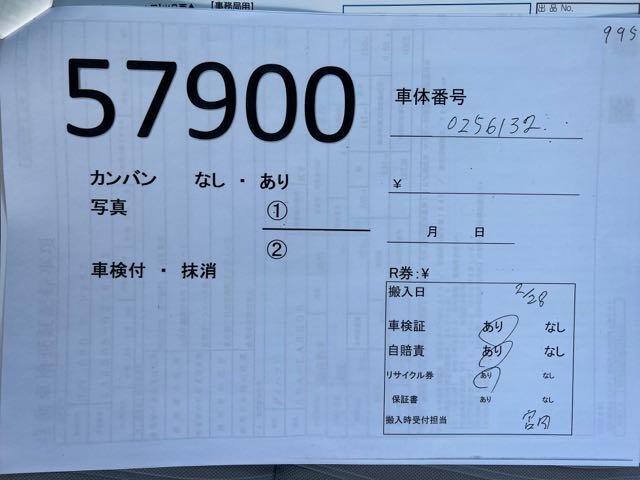 【事務局用】
出品No.
995
57900
車体番号
0256132
カンバン なし・あり
¥
写真 ①
②
月 日
車検付・抹消
R券:¥
搬入日 2/28
車検証 あり なし
自賠責 あり なし
リサイクル券 あり なし
保証書 あり なし
搬入時受付担当 宮内